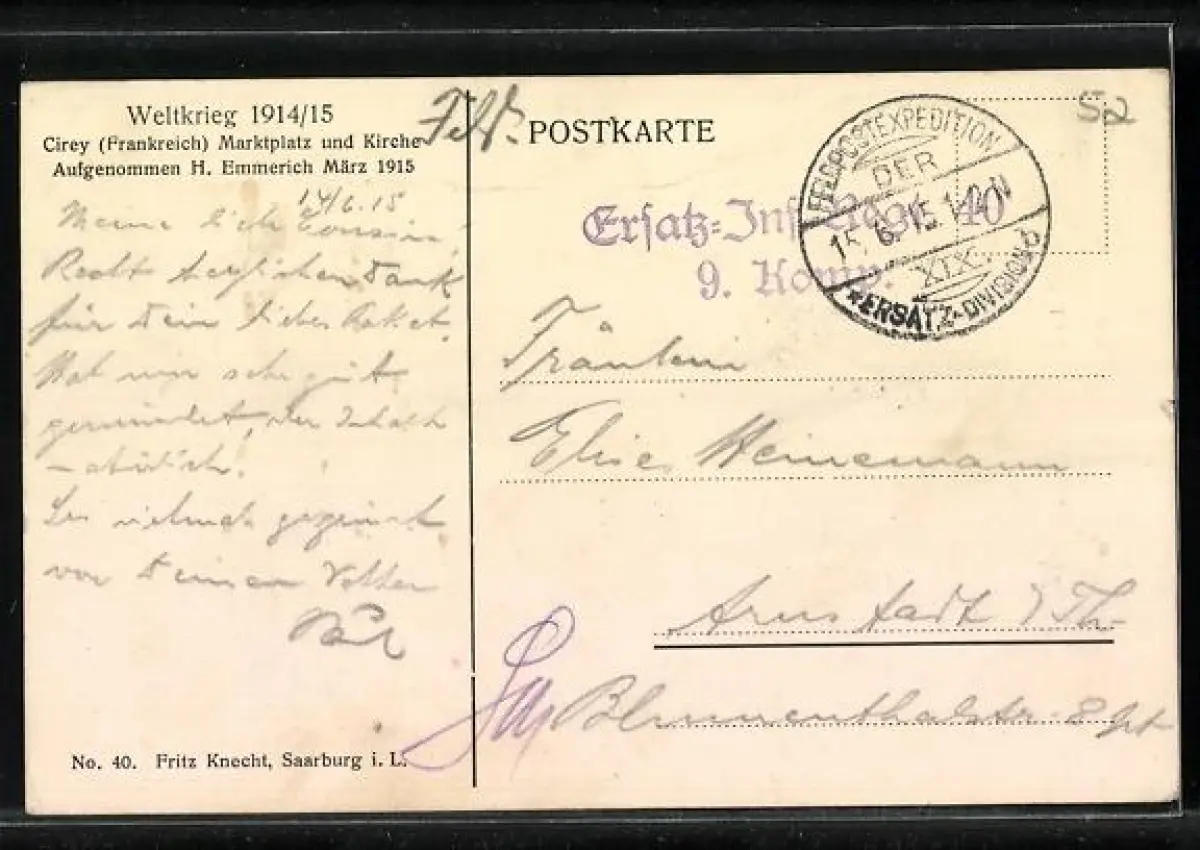 Weltkrieg 1914/15
Cirey (Frankreich) Marktplatz und Kirche
Aufgenommen H. Emmerich März 1915
14/6.15
Meine liebe Cousine!
Recht herzlichen Dank
für Dein liebes Paket.
Hat mir sehr gut
gemundet, der Inhalt
Sei vielmals gegrüsst
von Deinem Vetter
No. 40. Fritz Knecht, Saarburg i. L.
POSTKARTE
52
FELDPOSTEXPEDITION
DER
15.6.15.
XIX.
*ERSATZ-DIVISION
Ersatz-Inf. Regt. 40
9. Komp.
Fräulein
Elise Heinemann
Arnstadt / Th.
Blumenthalstr.